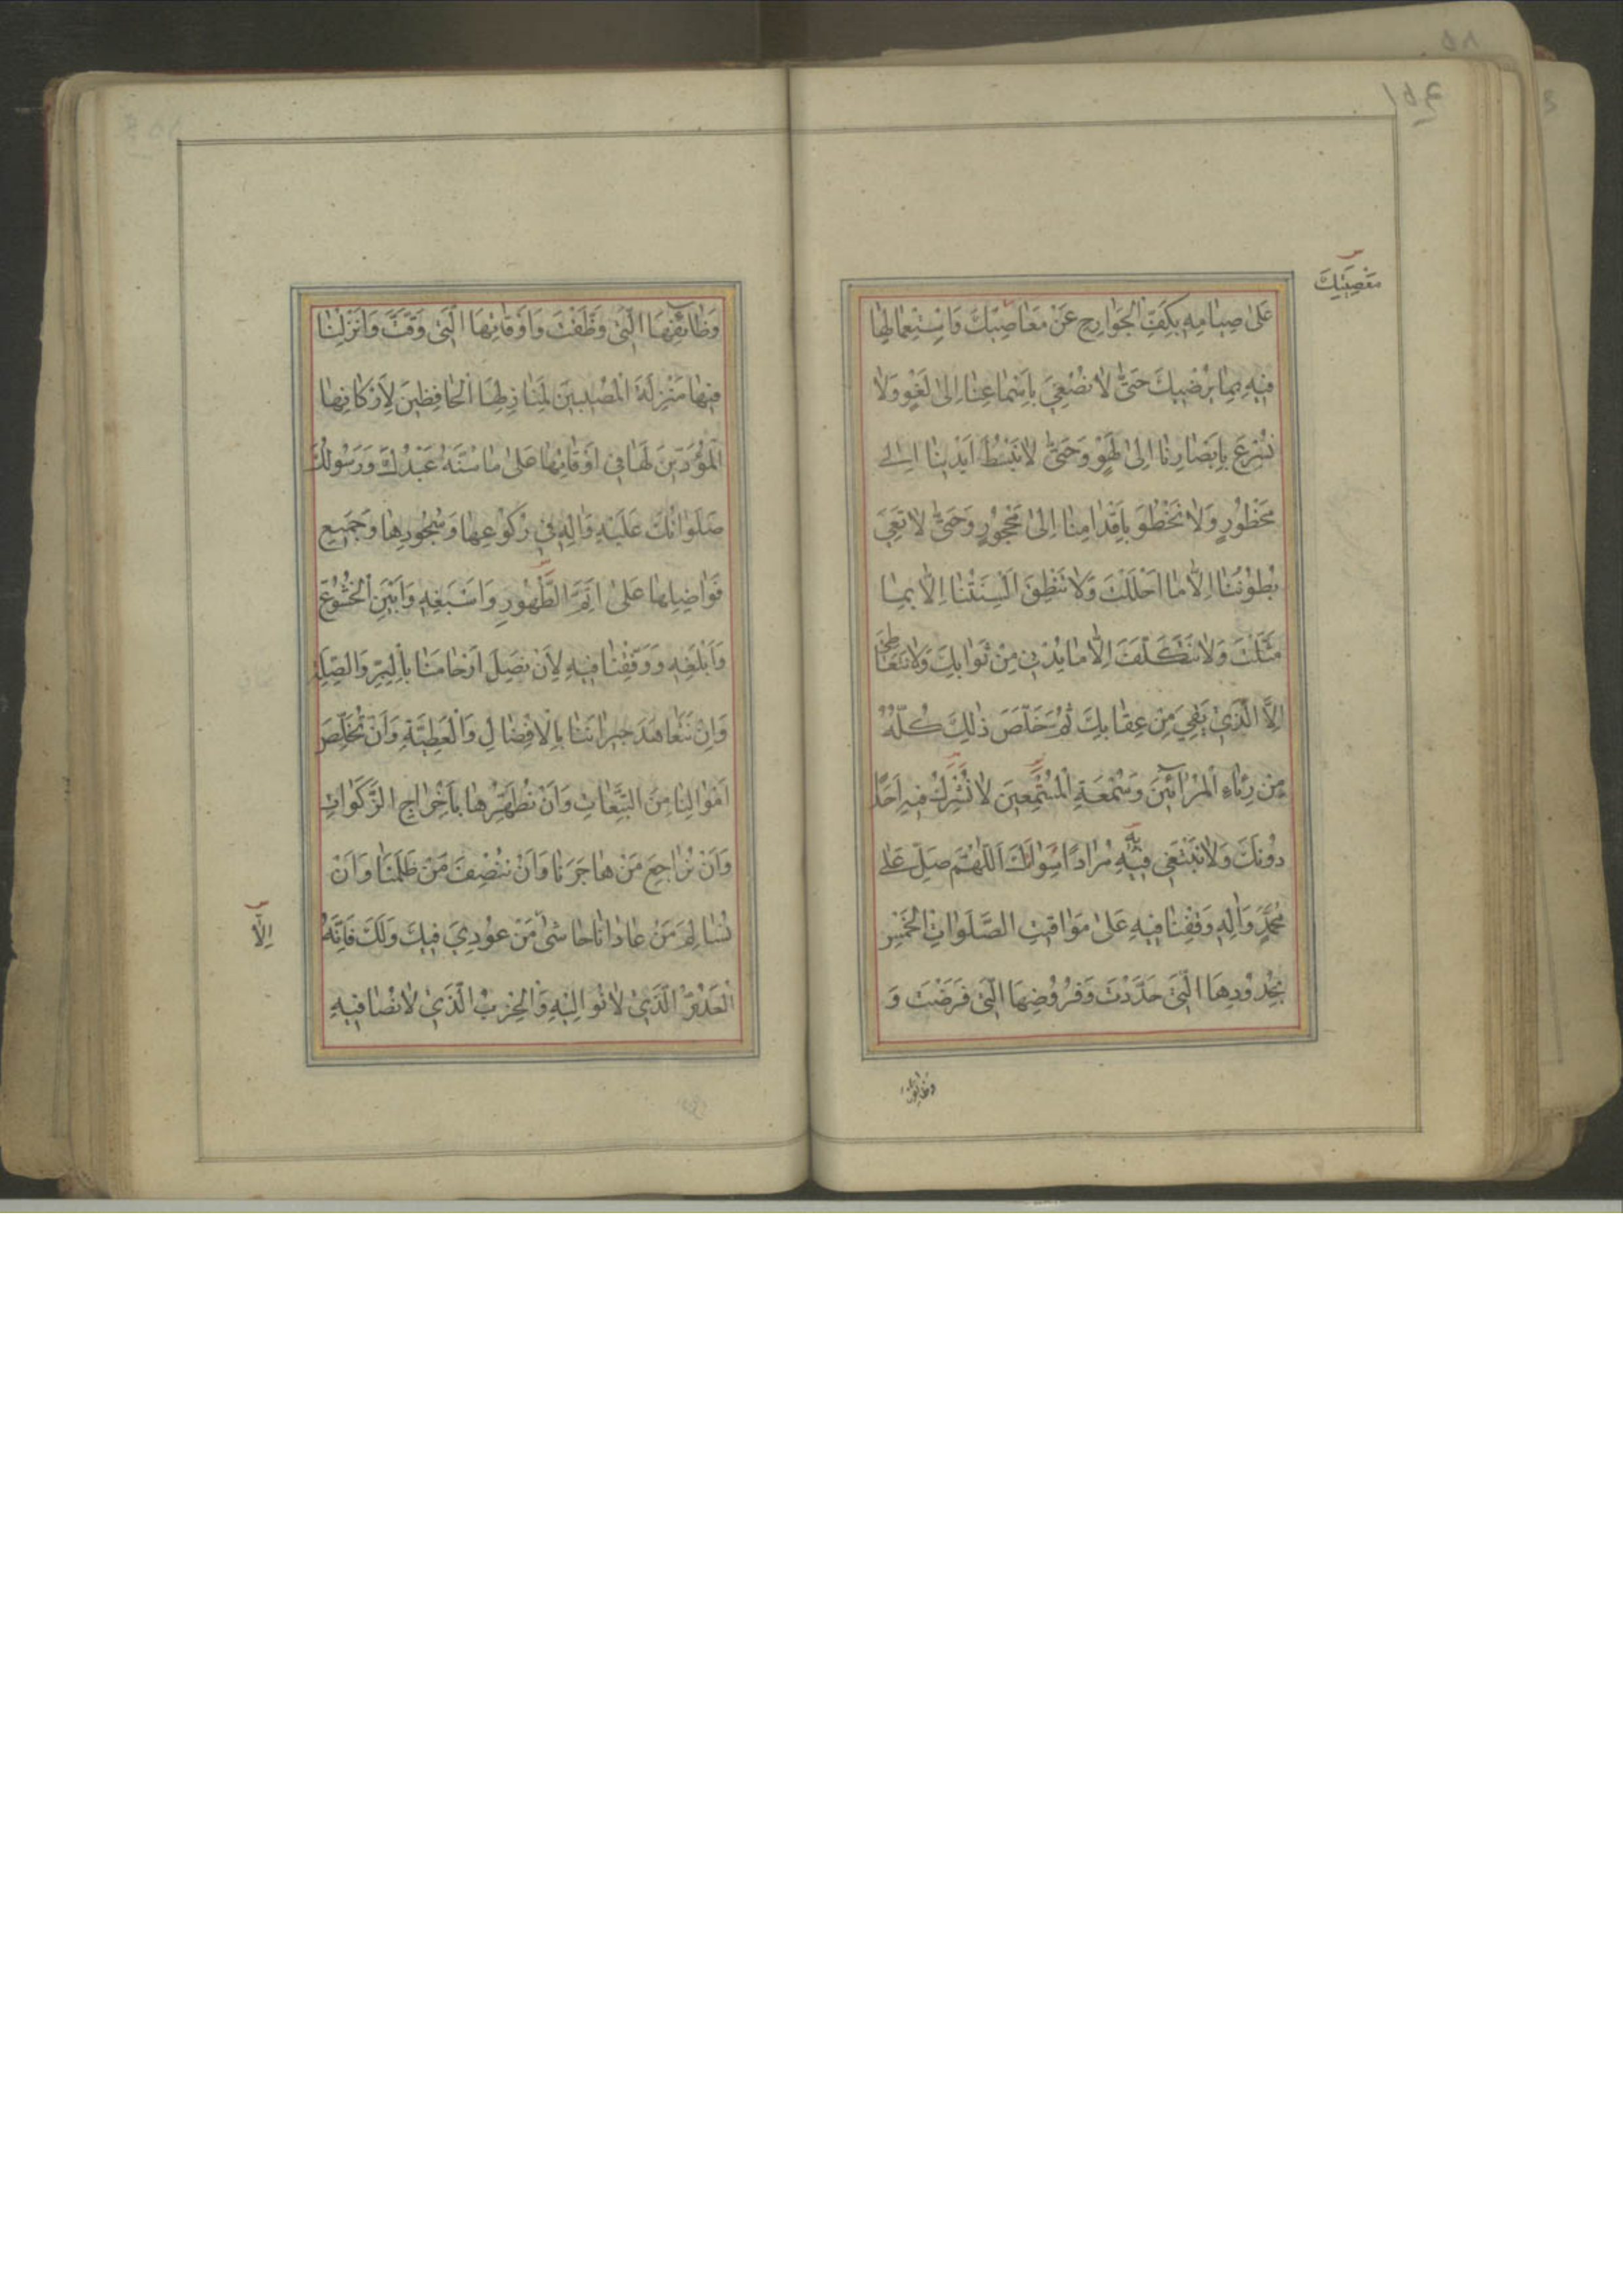 معصيتك
عَلىٰ صِيامِهِ بِكَفِّ الْجَوارِحِ عَنْ مَعاصيكَ وَاسْتِعْمالِها
فيهِ بِما يُرْضيكَ حَتّىٰ لا نُصْغِيَ بِاَسْماعِنا اِلىٰ لَغْوٍ وَلا
نُسْرِعَ بِاَبْصارِنا اِلىٰ لَهْوٍ وَحَتّىٰ لا نَبْسُطَ اَيْدِيَنا اِلىٰ
مَحْظُورٍ وَلا نَخْطُوَ بِاَقْدامِنا اِلىٰ مَحْجُورٍ وَحَتّىٰ لا تَعِيَ
بُطُونُنا اِلّا ما اَحْلَلْتَ وَلا تَنْطِقَ اَلْسِنَتُنا اِلّا بِما
مَثَّلْتَ وَلا نَتَكَلَّفَ اِلّا ما يُدْني مِنْ ثَوابِكَ وَلا نَتَعاطىٰ
اِلَّا الَّذي يَقي مِنْ عِقابِكَ ثُمَّ خَلِّصْ ذٰلِكَ كُلَّهُ
مِنْ رِئاءِ الْمُرائينَ وَسُمْعَةِ الْمُسْتَمِعينَ لا نُشْرِكُ فيهِ اَحَداً
دُونَكَ وَلا نَبْتَغي فيهِ مُراداً سِواكَ اَللّٰهُمَّ صَلِّ عَلىٰ
مُحَمَّدٍ وَآلِهِ وَقِفْنا فيهِ عَلىٰ مَواقيتِ الصَّلَواتِ الْخَمْسِ
بِحُدُودِهَا الَّتي حَدَّدْتَ وَفُرُوضِهَا الَّتي فَرَضْتَ وَ
وظائفها
وَظائِفِهَا الَّتي وَظَّفْتَ وَاَوْقاتِهَا الَّتي وَقَّتَّ وَاَنْزِلْنا
فيها مَنْزِلَةَ الْمُصيبينَ لِمَنازِلِهَا الْحافِظينَ لِاَرْكانِها
الْمُؤَدّينَ لَها في اَوْقاتِها عَلىٰ ما سَنَّهُ عَبْدُكَ وَرَسُولُكَ
صَلَواتُكَ عَلَيْهِ وَآلِهِ في رُكُوعِها وَسُجُودِها وَجَميعِ
فَواضِلِها عَلىٰ اَتَمِّ الطَّهُورِ وَاَسْبَغِهِ وَاَبْيَنِ الْخُشُوعِ
وَاَبْلَغِهِ وَوَفِّقْنا فيهِ لِاَنْ نَصِلَ اَرْحامَنا بِالْبِرِّ وَالصِّلَةِ
وَاَنْ نَتَعاهَدَ جيرانَنا بِالْاِفْضالِ وَالْعَطِيَّةِ وَاَنْ نُخَلِّصَ
اَمْوالَنا مِنَ التَّبِعاتِ وَاَنْ نُطَهِّرَها بِاِخْراجِ الزَّكَواتِ
وَاَنْ نُراجِعَ مَنْ هاجَرَنا وَاَنْ نُنْصِفَ مَنْ ظَلَمَنا وَاَنْ
نُسالِمَ مَنْ عادانا حاشىٰ مَنْ عُودِيَ فيكَ وَلَكَ فَاِنَّهُ
اِلّا
الْعَدُوُّ الَّذي لا نُواليهِ وَالْحِزْبُ الَّذي لا نُصافيهِ